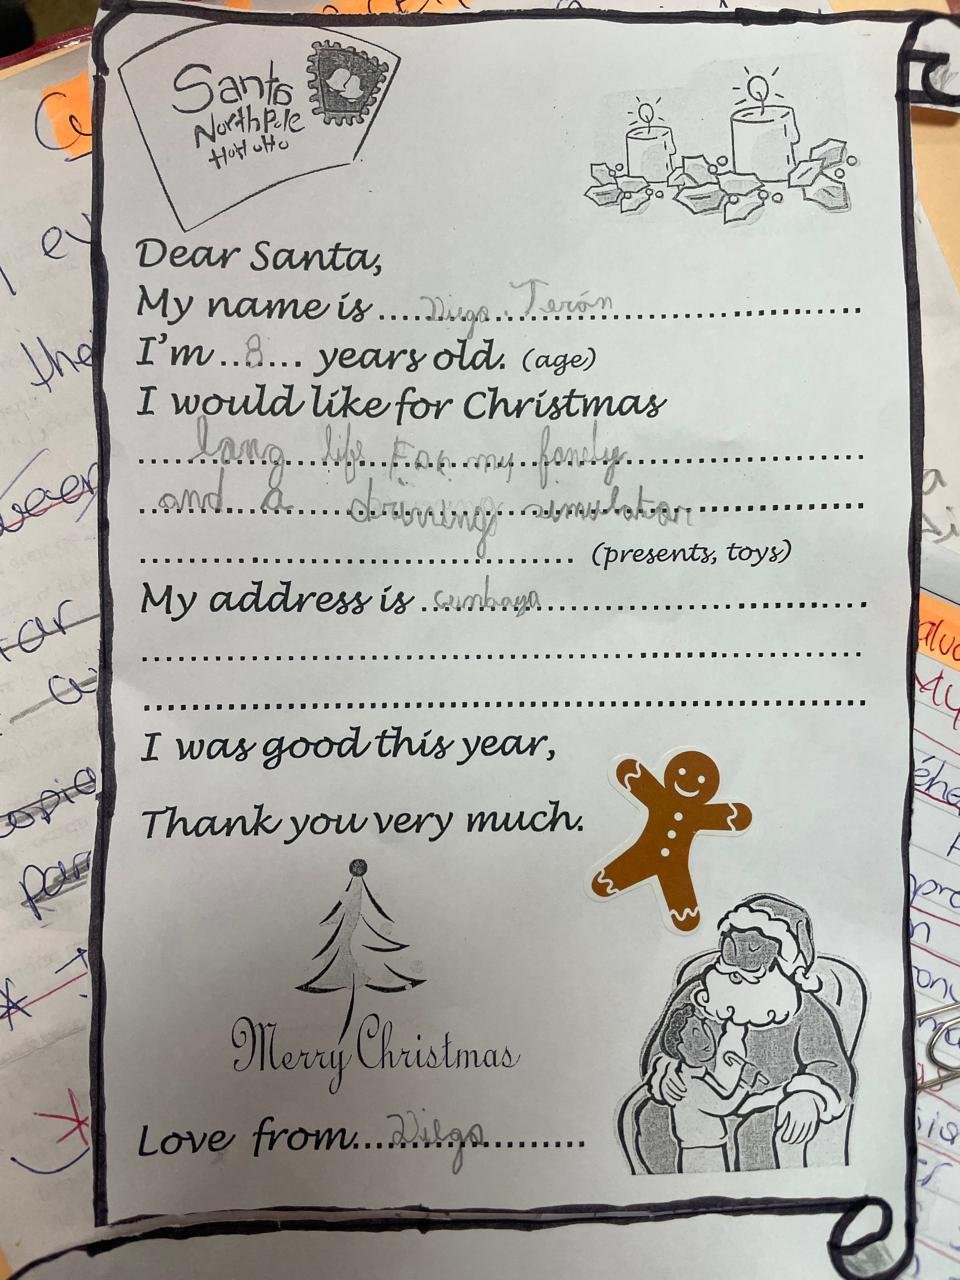 Santa
North Pole
HoHoHo
Dear Santa,
My name is ....Diego Terán..............................
I'm ..8.... years old. (age)
I would like for Christmas
long life For my famly
and a driving simulator
(presents, toys)
My address is ..cumbaya..............................
I was good this year,
Thank you very much.
Merry Christmas
Love from...Diego............